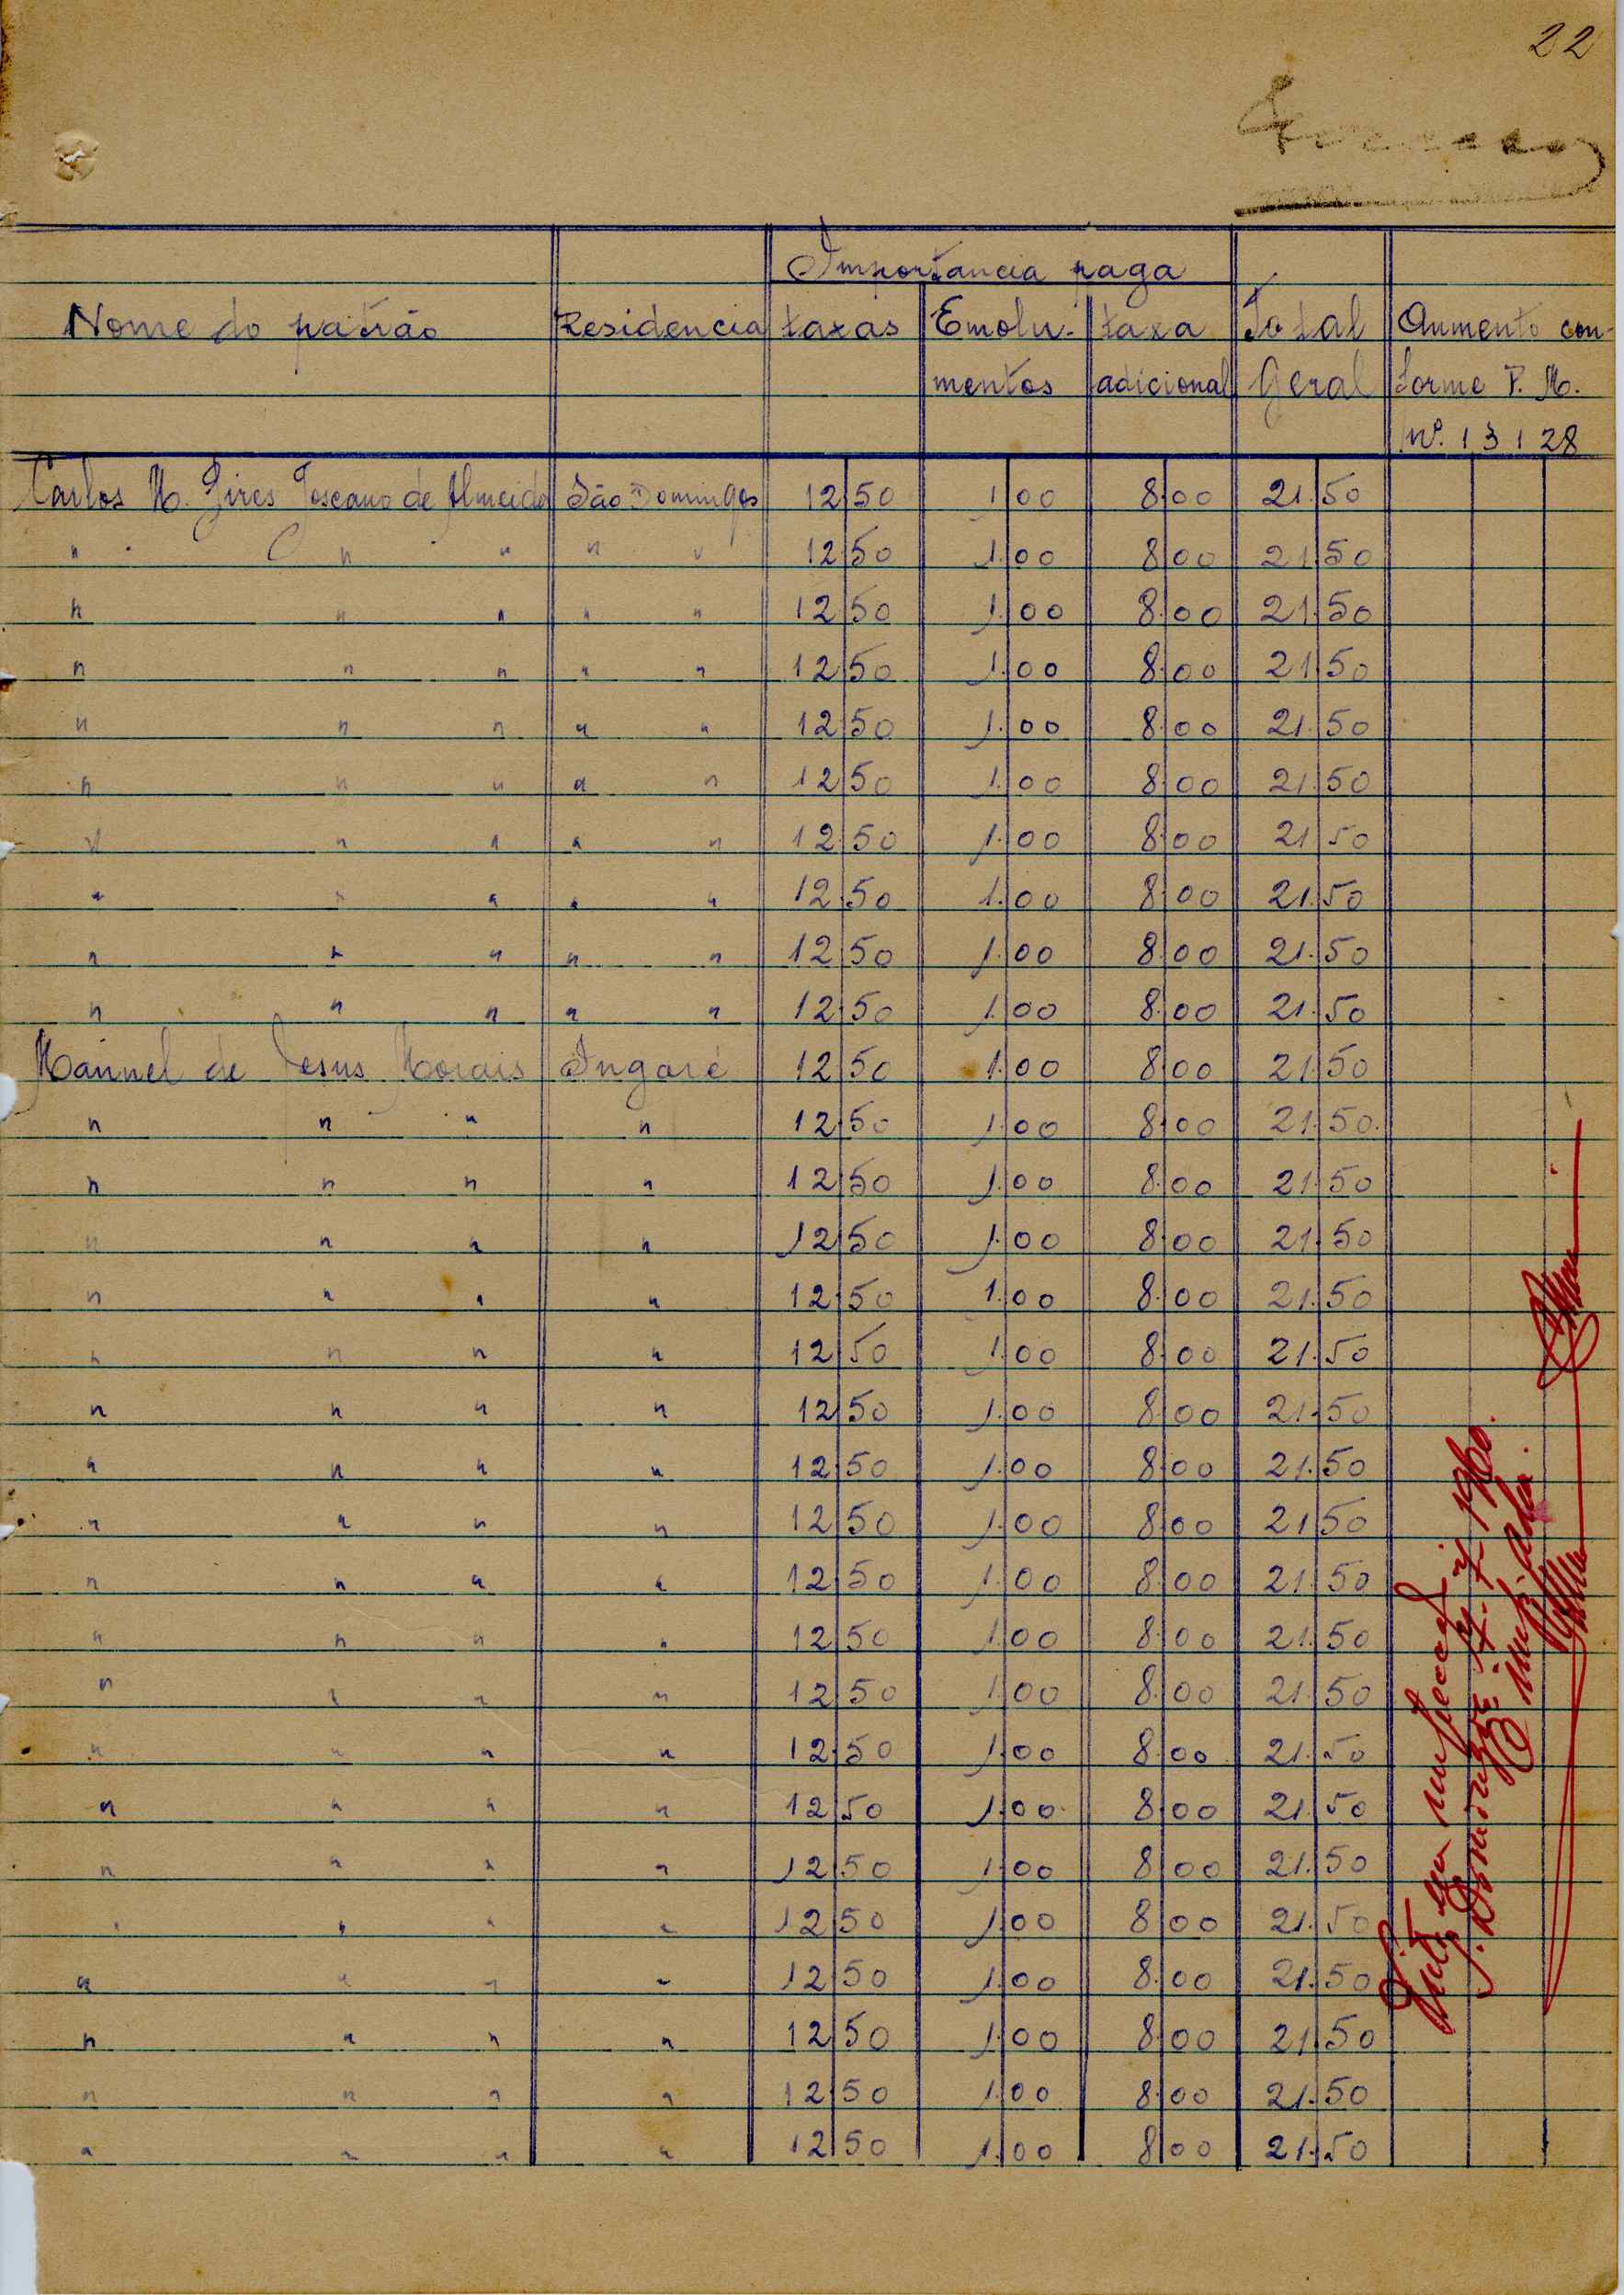 22
Importancia paga
Nome do patrão Residencia taxas Emolu- taxa Total Aumento con-
mentos adicional Geral forme P. M.
nº. 13128
Carlos M. Pires Toscano de Almeida São Domingos 12.50 1.00 8.00 21.50
" " " " " 12.50 1.00 8.00 21.50
" " " " " 12.50 1.00 8.00 21.50
" " " " " 12.50 1.00 8.00 21.50
" " " " " 12.50 1.00 8.00 21.50
" " " " " 12.50 1.00 8.00 21.50
" " " " " 12.50 1.00 8.00 21.50
" " " " " 12.50 1.00 8.00 21.50
" " " " " 12.50 1.00 8.00 21.50
" " " " " 12.50 1.00 8.00 21.50
Manuel de Jesus Morais Ingoré 12.50 1.00 8.00 21.50
" " " " 12.50 1.00 8.00 21.50.
" " " " 12.50 1.00 8.00 21.50
" " " " 12.50 1.00 8.00 21.50
" " " " 12.50 1.00 8.00 21.50
" " " " 12.50 1.00 8.00 21.50
" " " " 12.50 1.00 8.00 21.50
" " " " 12.50 1.00 8.00 21.50
" " " " 12.50 1.00 8.00 21.50
" " " " 12.50 1.00 8.00 21.50
" " " " 12.50 1.00 8.00 21.50
" " " " 12.50 1.00 8.00 21.50
" " " " 12.50 1.00 8.00 21.50
" " " " 12.50 1.00 8.00 21.50
" " " " 12.50 1.00 8.00 21.50
" " " " 12.50 1.00 8.00 21.50
" " " " 12.50 1.00 8.00 21.50
" " " " 12.50 1.00 8.00 21.50
" " " " 12.50 1.00 8.00 21.50
" " " " 12.50 1.00 8.00 21.50
Visto em inspecção
S. Domingos 1960.
O